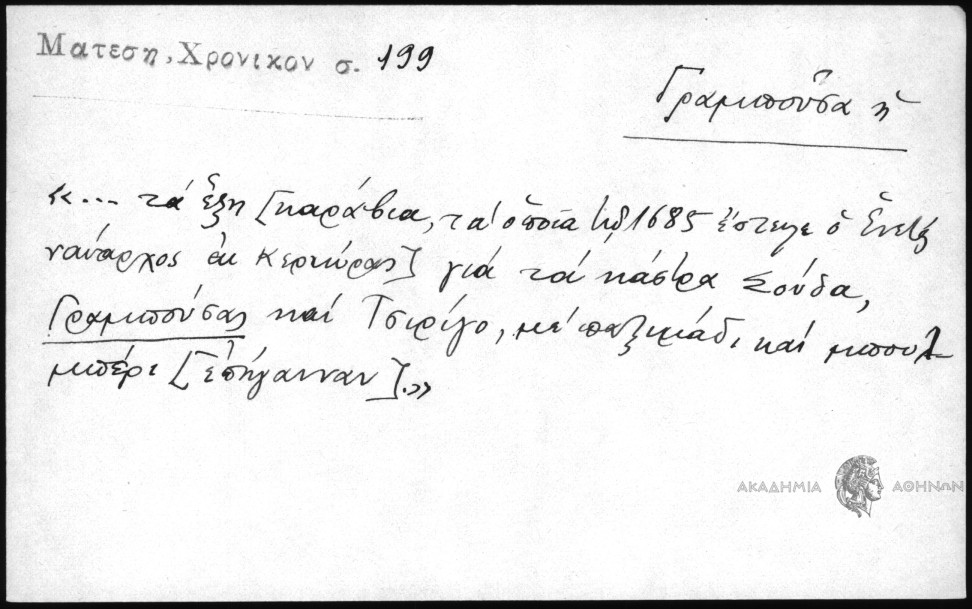 Ματεση, Χρονικον σ. 199
Γραμποῦσα ἡ
«... τά ἕξη [καράβια, τά ὁποῖα 1685 ἔστειλε ὁ Ἐνετός
ναύαρχος ἐκ Κερκύρας] γιά τά κάστρα Σούδα,
Γραμπούσας καί Τσιρίγο, μέ παξιμάδι καί μπουλ-
μπέρι [ἐπήγαιναν].»
ΑΚΑΔΗΜΙΑ ΑΘΗΝΩΝ